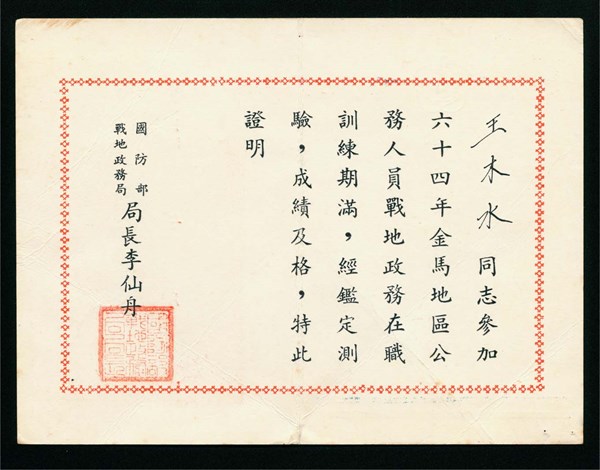 王木水同志參加
六十四年金馬地區公
務人員戰地政務在職
訓練期滿，經鑑定測
驗，成績及格，特此
證明
國防部
戰地政務局
局長李仙舟